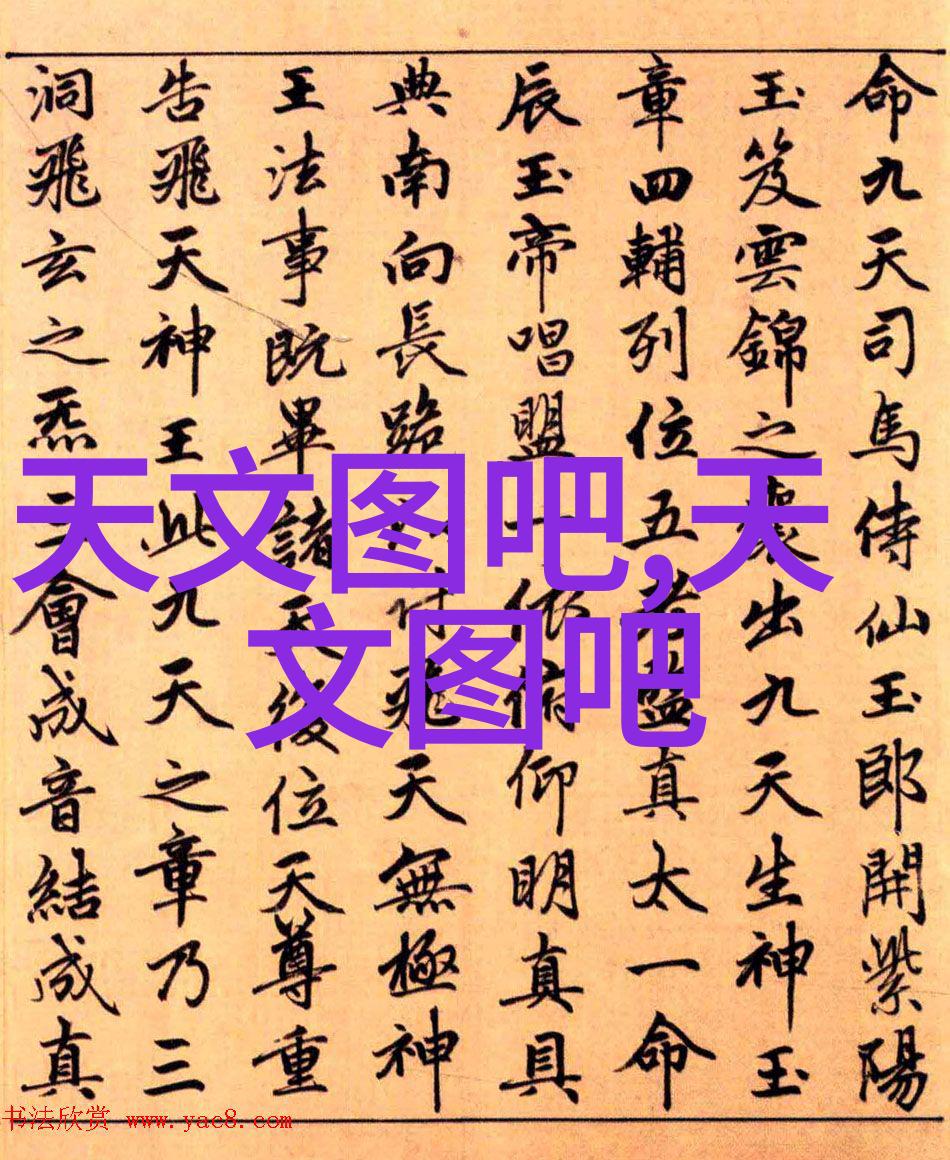 命九天司馬侍仙玉郎開紫陽
玉笈雲錦之囊出九天生神玉
章四輔列位五老監真太一命
辰玉帝唱盟一依俯仰明真具
典南向長跪付飛天無極神
王法事既畢諸天復位天尊重
告飛天神王此九天之章乃三
洞飛玄之炁三會成音結成真
天文图吧,天
文图吧
书法欣赏 www.yac8.com